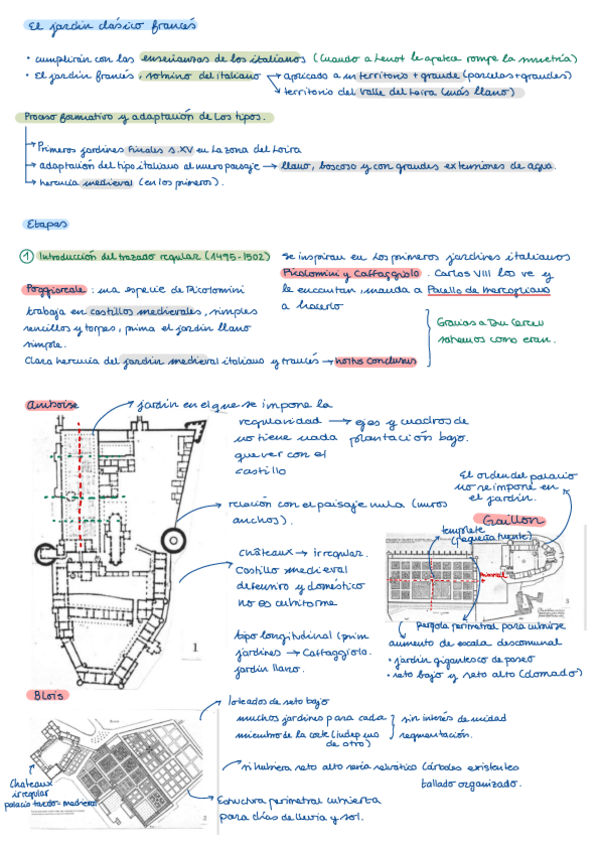 El jardín clásico francés
• cumplirán con las enseñanzas de los italianos (Cuando a Lenot le apetece rompe la simetría)
• El jardín francés, sobrino del italiano → aplicado a un territorio + grande (parcelas + grandes)
→ territorio del Valle del Loira (más llano)
Proceso formativo y adaptación de los tipos.
→ Primeros jardines Finales s.XV en la zona del Loira
→ adaptación del tipo italiano al nuevo paisaje → llano, boscoso y con grandes extensiones de agua.
→ herencia medieval (en los primeros).
Etapas
① Introducción del trazado regular (1495-1502)
Se inspiran en los primeros jardines italianos
Picolomini y Caffaggiolo. Carlos VIII los ve y
le encantan, manda a Pacello de Mercogliano
a hacerlo
Poggioreale: una especie de Picolomini
trabaja en castillos medievales, simples
sencillos y torpes, prima el jardín llano
simple.
Clara herencia del jardín medieval italiano y francés → hortus conclusus
Gracias a Du Cerceu
sabemos como eran.
Amboise
jardín en el que se impone la
regularidad → ejes y cuadros de
no tiene nada plantación bajo.
que ver con el
castillo
relación con el paisaje nula (muros
anchos).
châteaux → irregular.
Castillo medieval
defensivo y doméstico
no es cubiforme
tipo longitudinal (prim
jardines → Caffaggiolo.
jardín llano.
1
El orden del palacio
no se impone en
el jardín.
Gaillon
templete
(pequeña fuente)
principal
3
pérgola perimetral para cubrirse
aumento de escala descomunal
• jardín gigantesco de paseo
• seto bajo y seto alto (domado)
Blois
loteados de seto bajo
muchos jardines para cada
miembro de la corte (indep uno
de otro)
sin interés de unidad
segmentación.
si hubiera seto alto sería selvático (árboles existentes
tallado organizado.
Estructura perimetral cubierta
para días de lluvia y sol.
Chateaux
irregular
palacio tardo-medieval
2